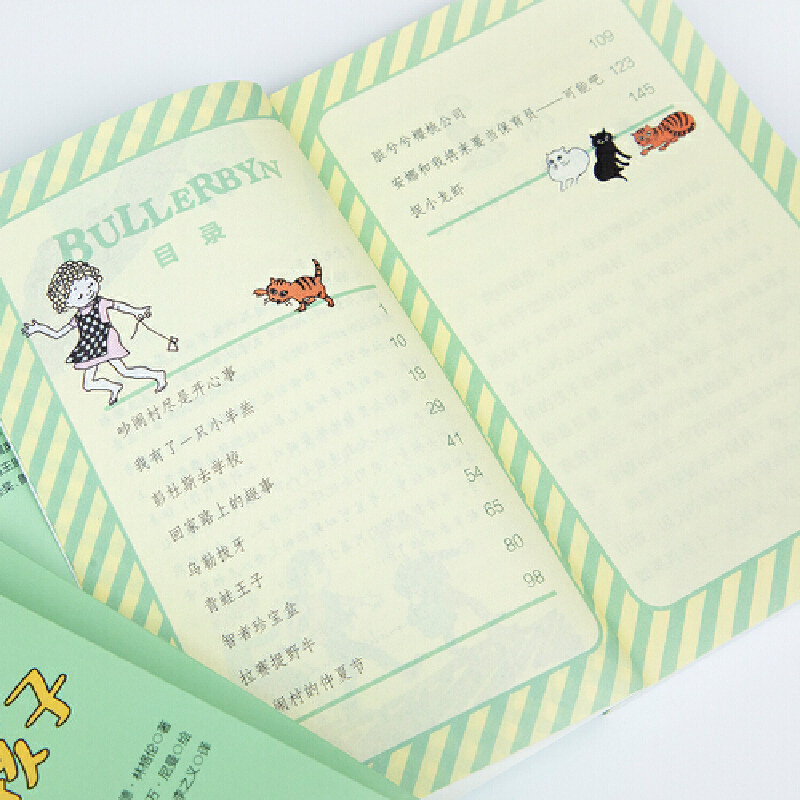 BULLERBYN
目录
吵闹村尽是开心事 1
我有了一只小羊羔 10
彭杜斯去学校 19
回家路上的趣事 29
乌勒拔牙 41
青蛙王子 54
智者珍宝盒 65
拉赛捉野牛 80
闹村的仲夏节 98
脏兮兮樱桃公司 109
安娜和我将来要当保育员——可能吧 123
捉小龙虾 145
德·林格伦◎著
万·尼曼◎绘
李之义◎译